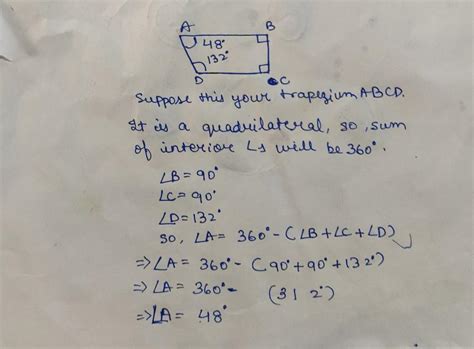 A B
48°
132°
D C
Suppose this your trapezium ABCD.
It is a quadrilateral, so, sum
of interior ∠s will be 360°.
∠B = 90°
∠C = 90°
∠D = 132°
so, ∠A = 360° - (∠B + ∠C + ∠D)
⇒ ∠A = 360° - (90° + 90° + 132°)
⇒ ∠A = 360° - (312°)
⇒ ∠A = 48°